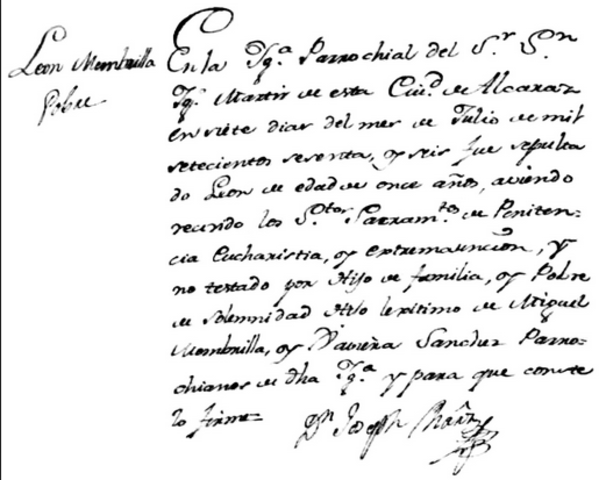 Leon Membrilla
Pobre
En la Ygª Parrochial del Sr Sn
Ygº Martir de esta Ciud de Alcaraz
en siete dias del mes de Julio de mil
setecientos sesenta, y seis fue sepulta
do Leon de edad de once años, aviendo
recivido los Stos Sacramtos de Peniten=
cia Eucharistia, y extremauncion, y
no testado por Hijo de familia, y Pobre
de solemnidad Hijo lexitimo de Miguel
Membrilla, y Xaviera Sanchez Parro=
chianos de dha Ygª y para que conste
lo firme=
Dn Joseph